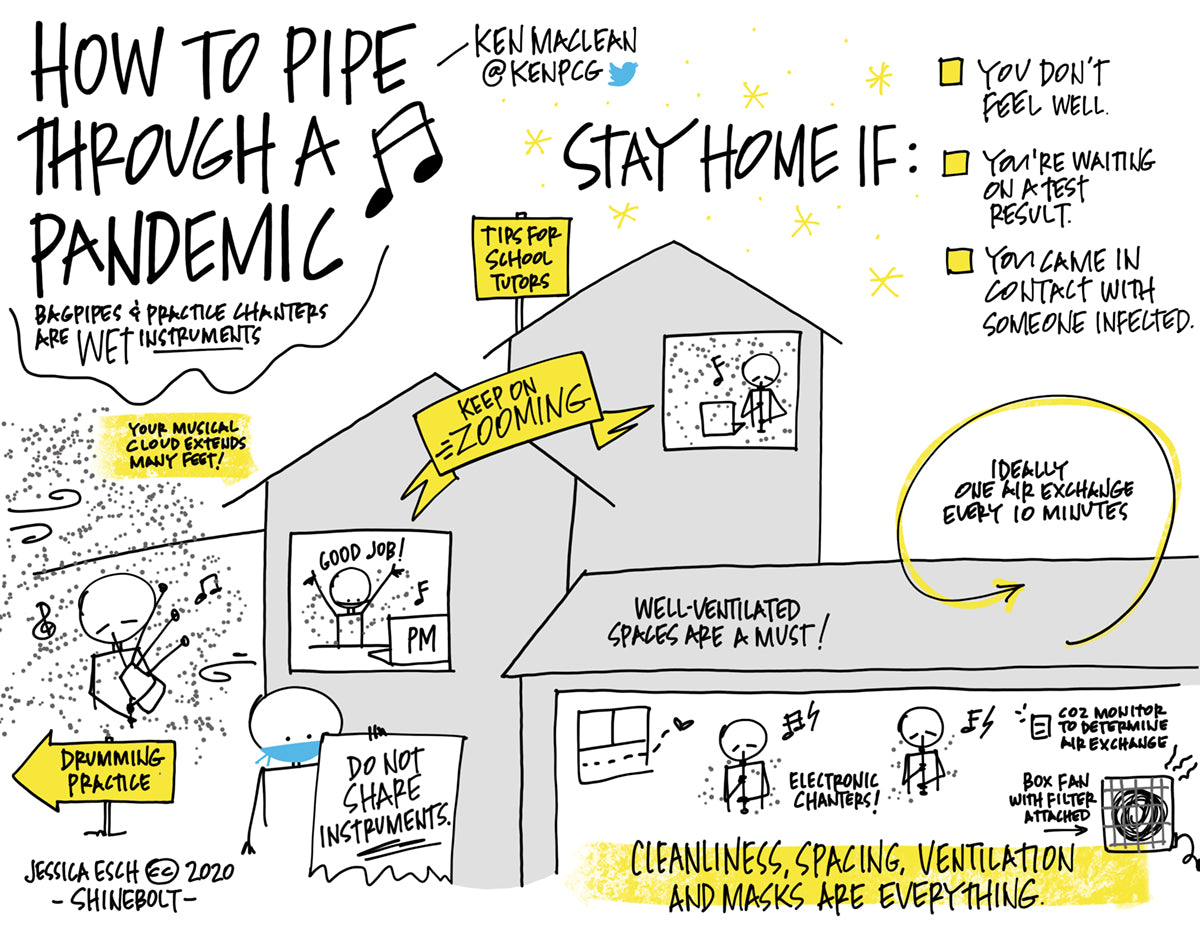 HOW TO PIPE
THROUGH A
PANDEMIC
KEN MACLEAN
@KENPCG
BAGPIPES & PRACTICE CHANTERS
ARE WET INSTRUMENTS
STAY HOME IF:
YOU DON'T
FEEL WELL.
YOU'RE WAITING
ON A TEST
RESULT.
YOU CAME IN
CONTACT WITH
SOMEONE INFECTED.
TIPS FOR
SCHOOL
TUTORS
KEEP ON
ZOOMING
YOUR MUSICAL
CLOUD EXTENDS
MANY FEET!
IDEALLY
ONE AIR EXCHANGE
EVERY 10 MINUTES
GOOD JOB!
PM
WELL-VENTILATED
SPACES ARE A MUST!
DRUMMING
PRACTICE
DO NOT
SHARE
INSTRUMENTS.
ELECTRONIC
CHANTERS!
CO2 MONITOR
TO DETERMINE
AIR EXCHANGE
BOX FAN
WITH FILTER
ATTACHED
CLEANLINESS, SPACING, VENTILATION
AND MASKS ARE EVERYTHING.
JESSICA ESCH CC 2020
- SHINEBOLT -